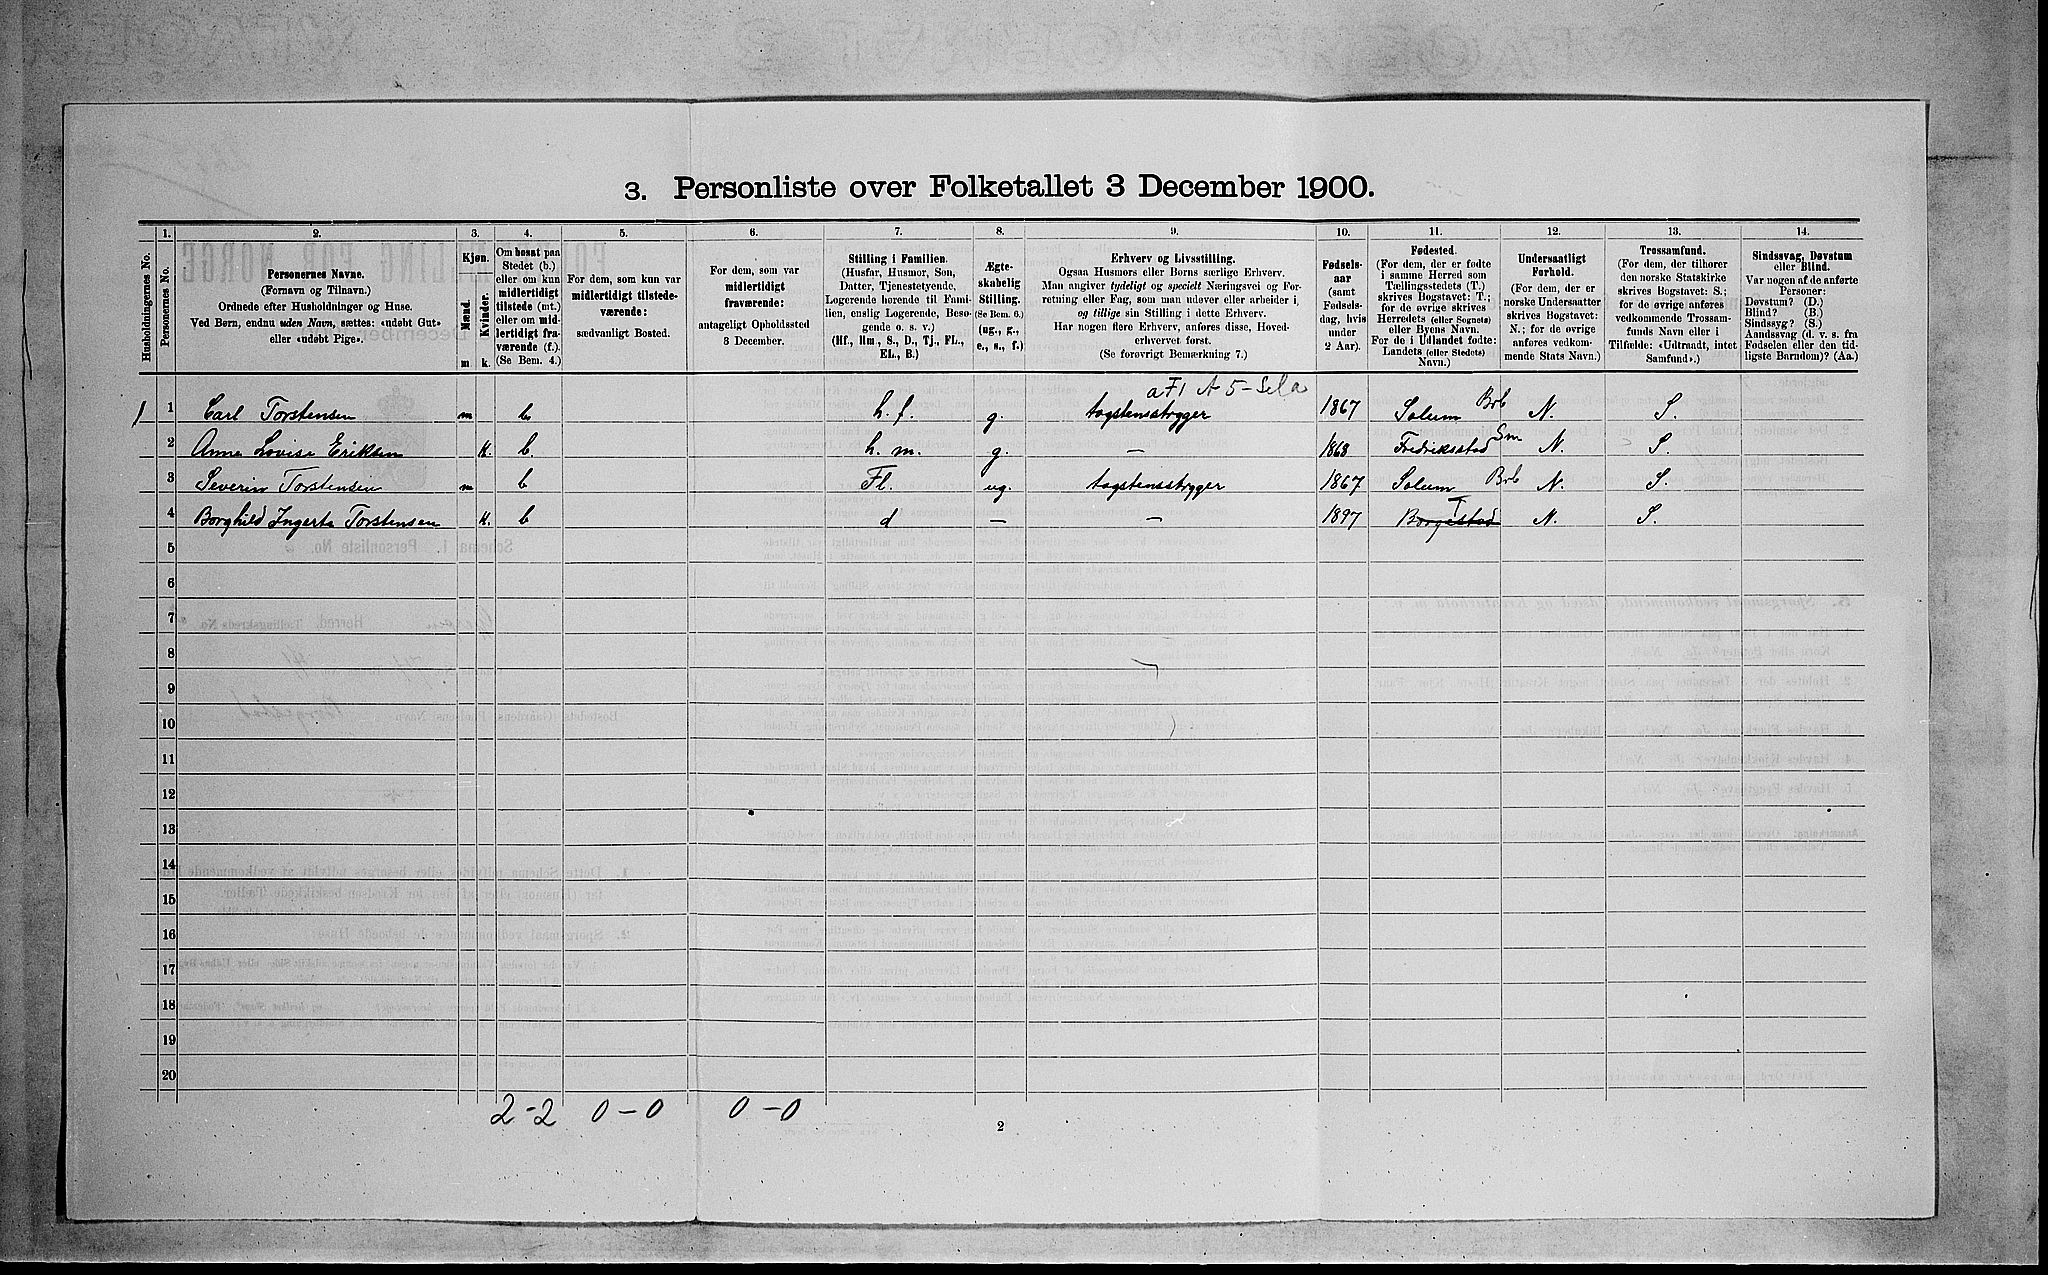 3. Personliste over Folketallet 3 December 1900.
1. 2. 3. 4. 5. 6. 7. 8. 9. 10. 11. 12. 13. 14.
Husholdningernes No.
Personernes No.
Personernes Navne.
(Fornavn og Tilnavn.)
Ordnede efter Husholdninger og Huse.
Ved Børn, endnu uden Navn, sættes: «udøbt Gut»
eller «udøbt Pige».
Kjøn.
Mænd.
Kvinder.
m. k.
Om bosat paa
Stedet (b.)
eller om kun
midlertidigt
tilstede (mt.)
eller om mid-
lertidigt fra-
værende (f.).
(Se Bem. 4.)
For dem, som kun var
midlertidigt tilstede-
værende:
sædvanligt Bosted.
For dem, som var
midlertidigt
fraværende:
antageligt Opholdssted
3 December.
Stilling i Familien.
(Husfar, Husmor, Søn,
Datter, Tjenestetyende,
Logerende hørende til Fami-
lien, enslig Logerende, Besø-
gende o. s. v.)
(Hf., Hm., S., D., Tj., FL.,
EL., B.)
Ægte-
skabelig
Stilling.
(Se Bem. 6.)
(ug., g.,
e., s., f.)
Erhverv og Livsstilling.
Ogsaa Husmors eller Børns særlige Erhverv.
Man angiver tydeligt og specielt Næringsvei og For-
retning eller Fag, som man udøver eller arbeider i,
og tillige sin Stilling i dette Erhverv.
Har nogen flere Erhverv, anføres disse, Hoved-
erhvervet først.
(Se forøvrigt Bemærkning 7.)
Fødsels-
aar
(samt
Fødsels-
dag, hvis
under
2 Aar).
Fødested.
(For dem, der er fødte
i samme Herred som
Tællingsstedets (T.)
skrives Bogstavet: T.;
for de øvrige skrives
Herredets (eller Sognets)
eller Byens Navn.
For de i Udlandet fødte:
Landets (eller Stedets)
Navn.)
Undersaatligt
Forhold.
(For dem, der er
norske Undersaatter
skrives Bogstavet:
N.; for de øvrige
anføres vedkom-
mende Stats Navn.)
Trossamfund.
(For dem, der tilhører
den norske Statskirke
skrives Bogstavet: S.;
for de øvrige anføres
vedkommende Trossam-
funds Navn eller i
Tilfælde: «Udtraadt, intet
Samfund».)
Sindssvag, Døvstum
eller Blind.
Var nogen af de anførte
Personer:
Døvstum? (D.)
Blind? (B.)
Sindssyg? (S.)
Aandssvag (d. v. s. fra
Fødselen eller den tid-
ligste Barndom)? (Aa.)
aFl A 5-Sela
1 1 Carl Torstensen m b h. f. g. tagstensstryger 1867 Solum Brb N. S.
2 Anne Lovise Eriksen k. b. h. m. g. — 1868 Fredriksstad Sm N. S.
3 Severin Torstensen m b Fl. ug. tagstensstryger 1867 Solum Brb N. S.
4 Borghild Ingerta Torstensen k. b d — — 1897 Borgestad T N. S.
5
6
7
8
9
10
11
12
13
14
15
16
17
18
19
20
2-2 0-0 0-0
2